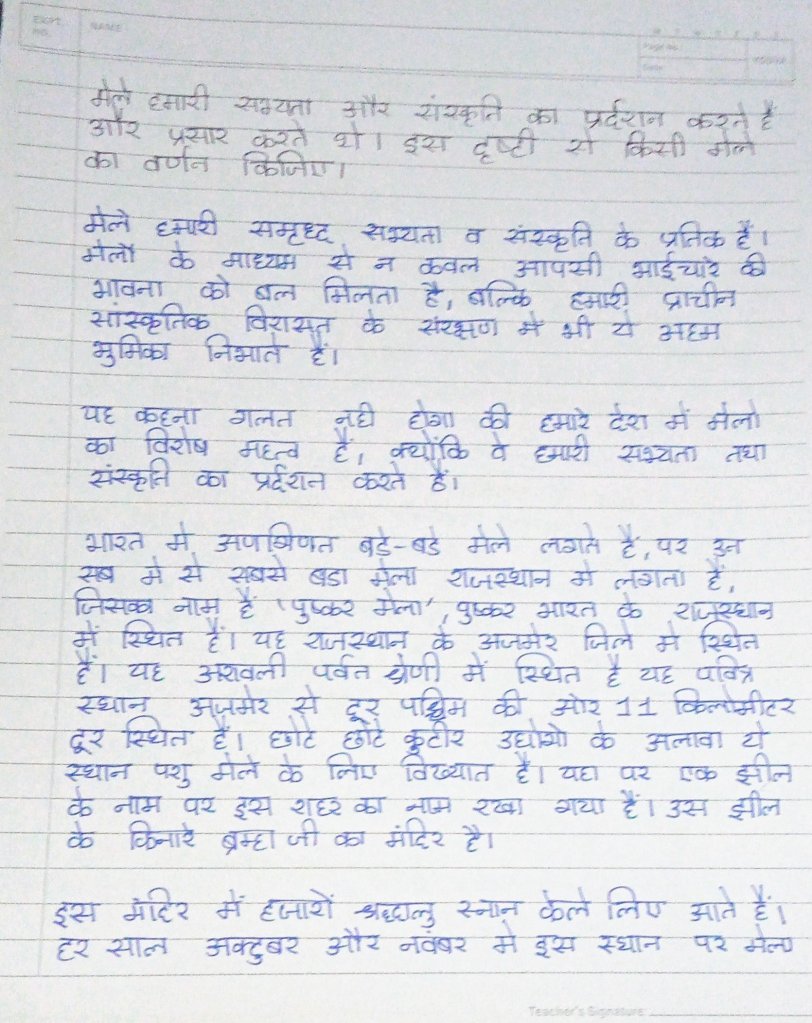 EXPT. NO.
NAME
Page No.
Date
मेले हमारी सभ्यता और संस्कृति का प्रर्दशन करते है
और प्रसार करते थे। इस दृष्टी से किसी मेले
का वर्णन किजिए।
मेले हमारी समृध्द सभ्यता व संस्कृति के प्रतिक हैं।
मेलों के माध्यम से न केवल आपसी भाईचारे की
भावना को बल मिलता है, बल्कि हमारी प्राचीन
सांस्कृतिक विरासत के संरक्षण में भी ये अहम
भुमिका निभाते हैं।
यह कहना गलत नही होगा की हमारे देश में मेलो
का विशेष महत्व हैं, क्योंकि वे हमारी सभ्यता तथा
संस्कृति का प्रर्दशन करते हैं।
भारत मे अणगिणत बडे-बडे मेले लगते हैं, पर उन
सब मे से सबसे बडा मेला राजस्थान मे लगता हैं,
जिसका नाम हैं 'पुष्कर मेला', पुष्कर भारत के राजस्थान
में स्थित हैं। यह राजस्थान के अजमेर जिले मे स्थित
हैं। यह अरावली पर्वत श्रेणी में स्थित है यह पवित्र
स्थान अजमेर से दूर पश्चिम की ओर 11 किलोमीटर
दूर स्थित है। छोटे छोटे कुटीर उद्योगो के अलावा ये
स्थान पशु मेले के लिए विख्यात है। यहा पर एक झील
के नाम पर इस शहर का नाम रखा गया हैं। उस झील
के किनारे ब्रम्हा जी का मंदिर है।
इस मंदिर में हजारों श्रद्धालु स्नान केले लिए आते हैं।
हर साल अक्टुबर और नवंबर मे इस स्थान पर मेला
Teacher's Signature: